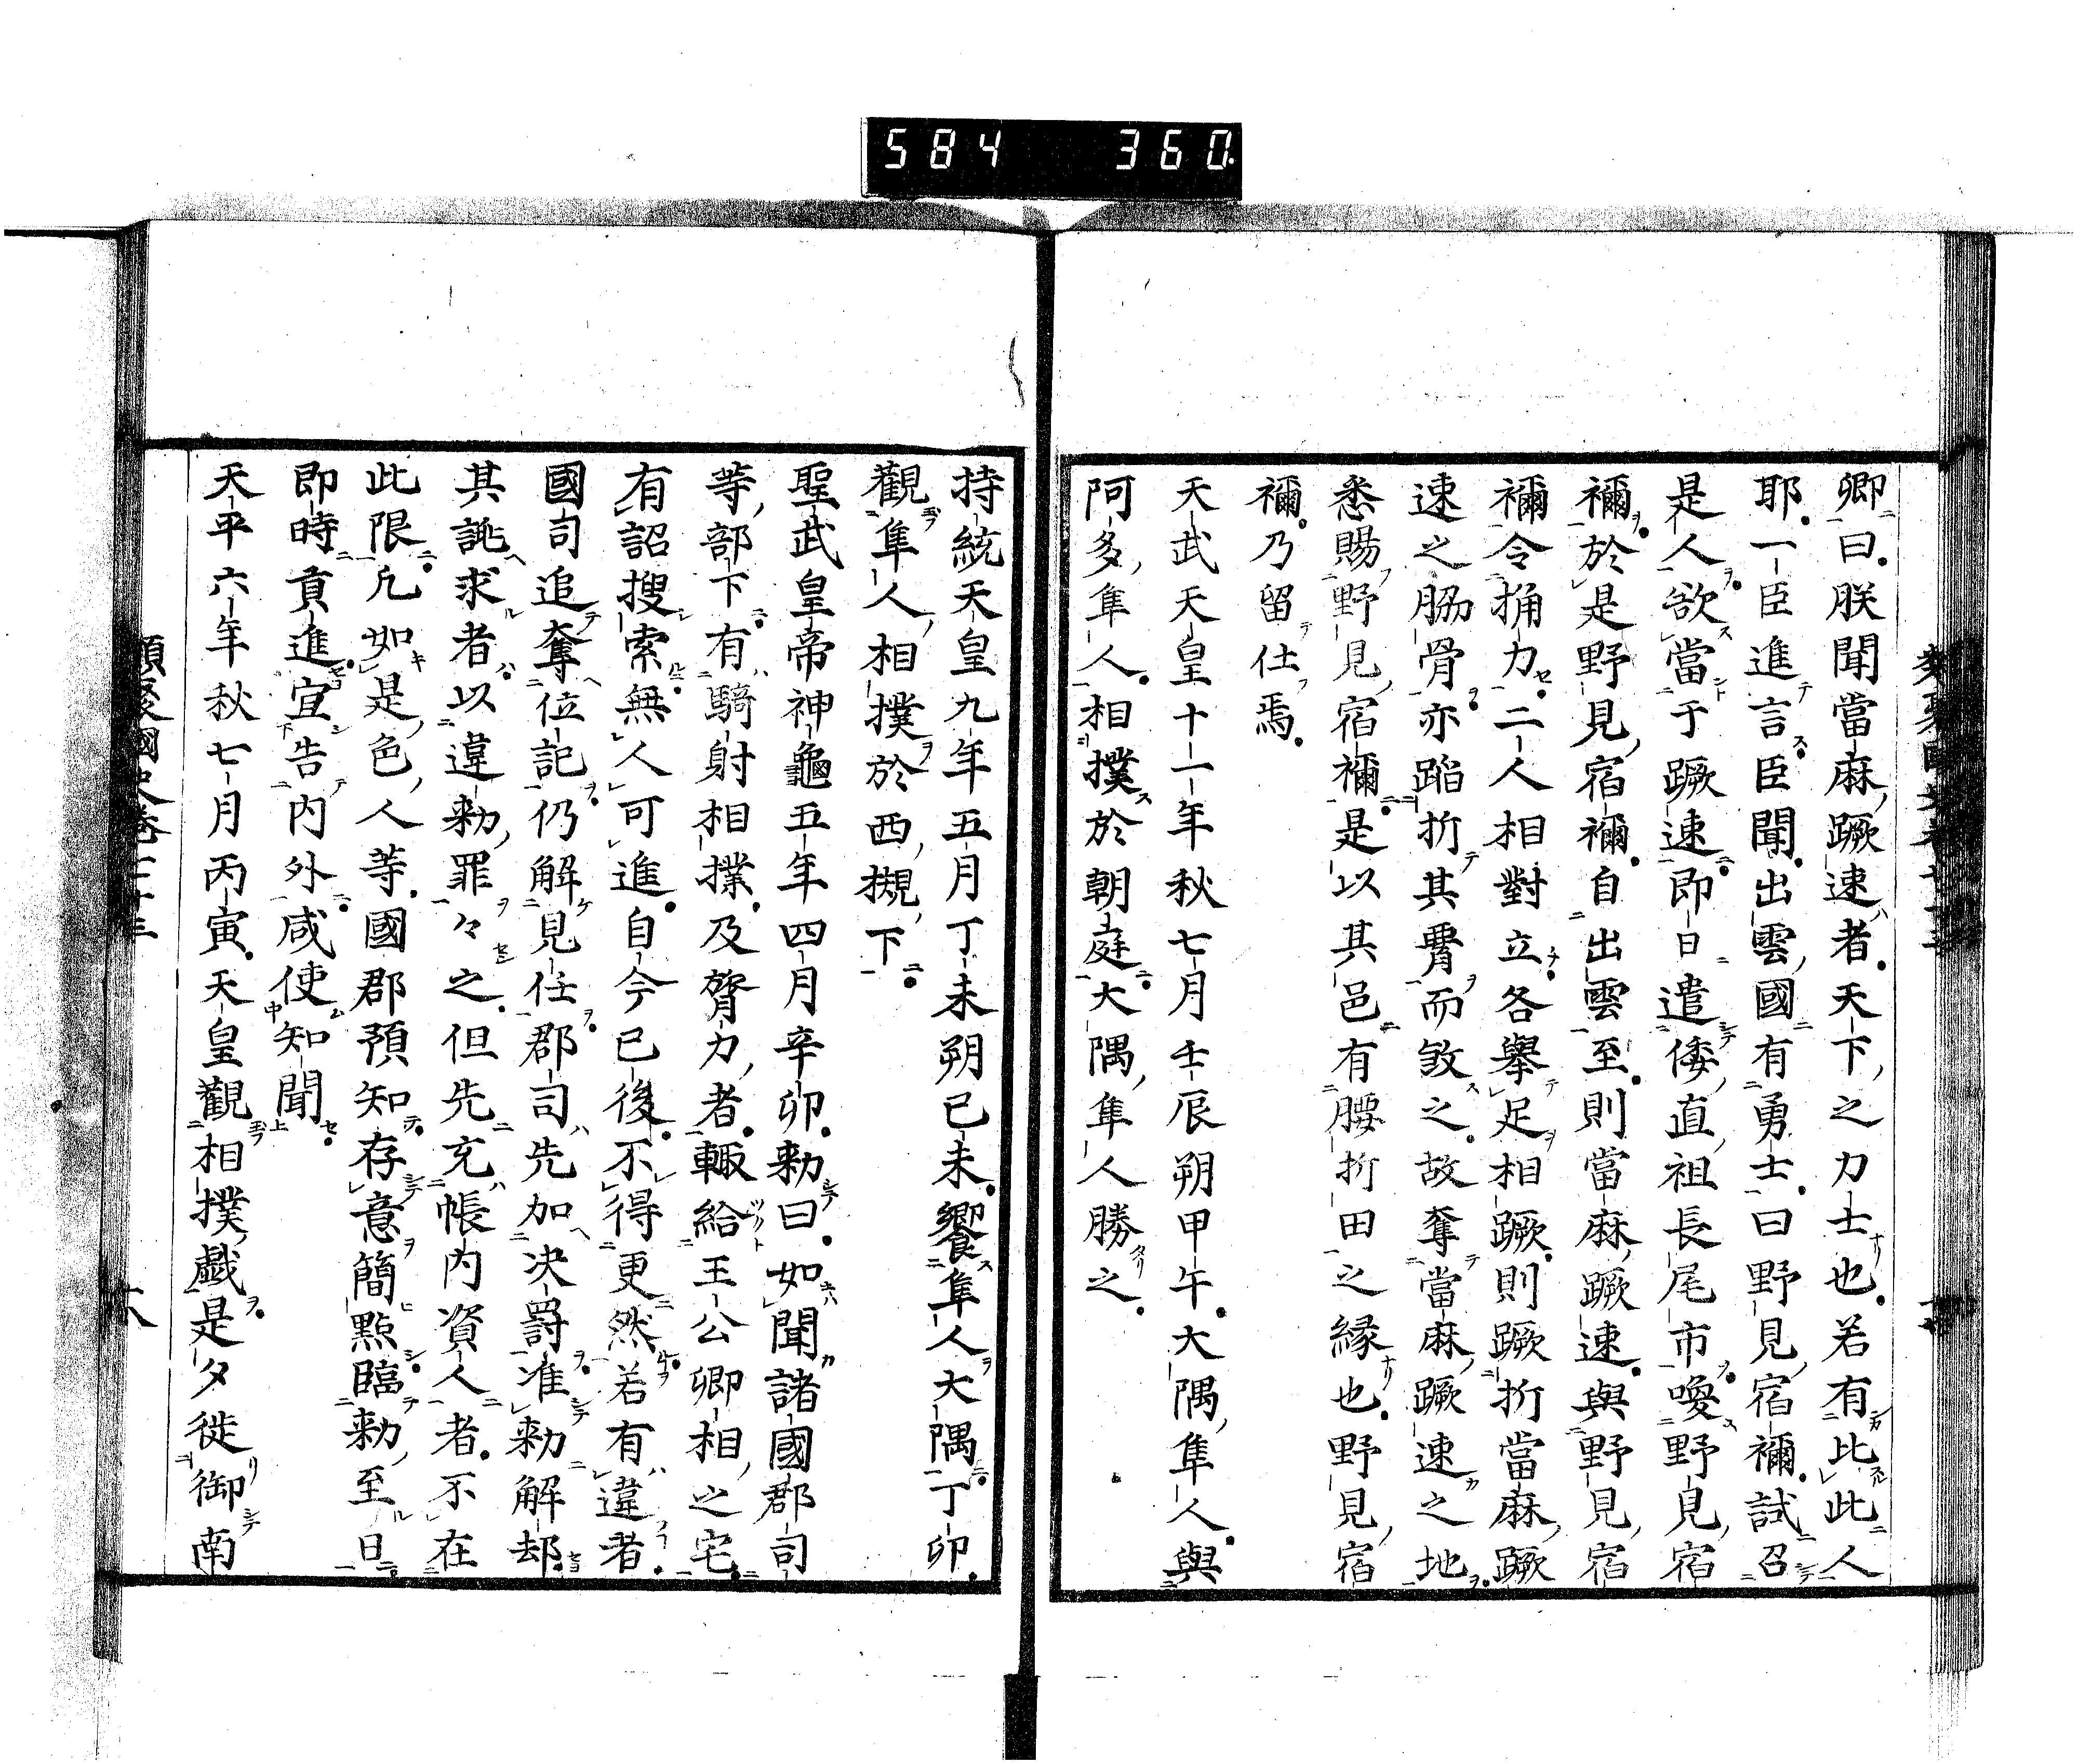 584 360
卿曰朕聞當麻蹶速者天下之力士也若有比此人
耶一臣進言臣聞出雲國有勇士曰野見宿禰試召
是人欲當于蹶速即日遣倭直祖長尾市喚野見宿
禰於是野見宿禰自出雲至則當麻蹶速與野見宿
禰令捔力二人相對立各擧足相蹶則蹶折當麻蹶
速之脇骨亦蹈折其𦝫而殺之故奪當麻蹶速之地
悉賜野見宿禰是以其邑有腰折田之縁也野見宿
禰乃留仕焉
天武天皇十一年秋七月壬辰朔甲午大隅隼人與
阿多隼人相撲於朝庭大隅隼人勝之
持統天皇九年五月丁未朔己未饗隼人大隅丁卯
觀隼人相撲於西槻下
聖武皇帝神龜五年四月辛卯勅曰如聞諸國郡司
等部下有騎射相撲及膂力者輙給王公卿相之宅
有詔搜索無人可進自今已後不得更然若有違者
國司追奪位記仍解見任郡司先加决罸准勅解却
其誂求者以違勅罪々之但先充帳内資人者不在
此限凡如是色人等國郡預知存意簡點臨勅至日
即時貢進宜告内外咸使知聞
天平六年秋七月丙寅天皇觀相撲戯是夕徙御南
類聚國史卷七十三
十八